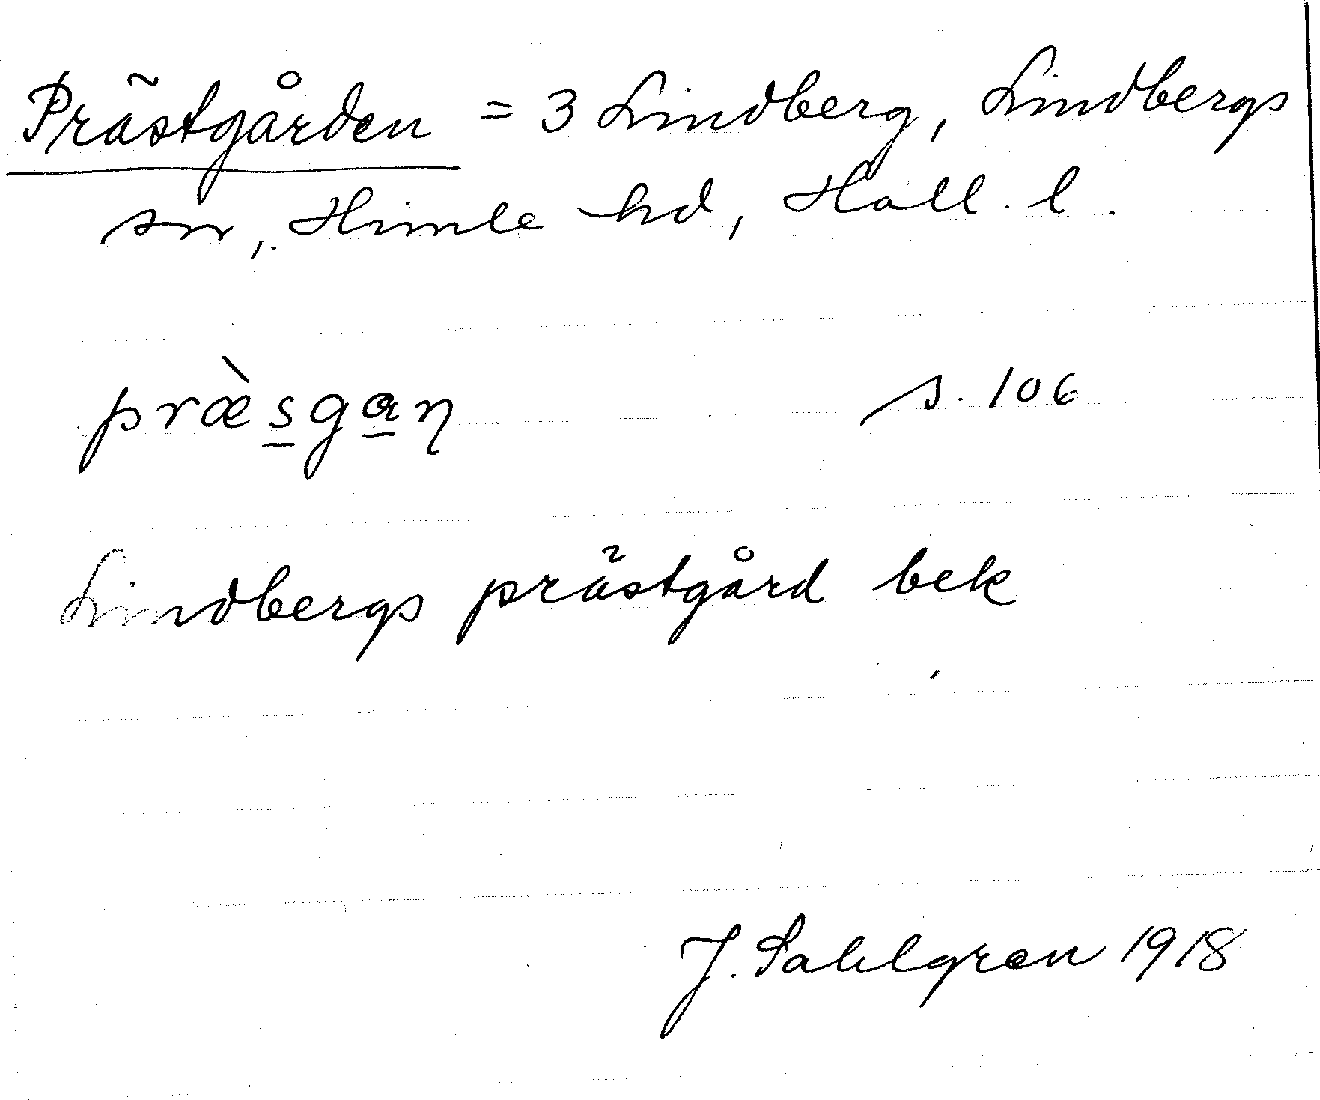 Prästgården = 3 Lindberg, Lindbergs
sn, Himle hd, Hall. l.
præ̀s̲ga̲ƞ s. 106
Lindbergs prästgård bek
J. Sahlgren 1918